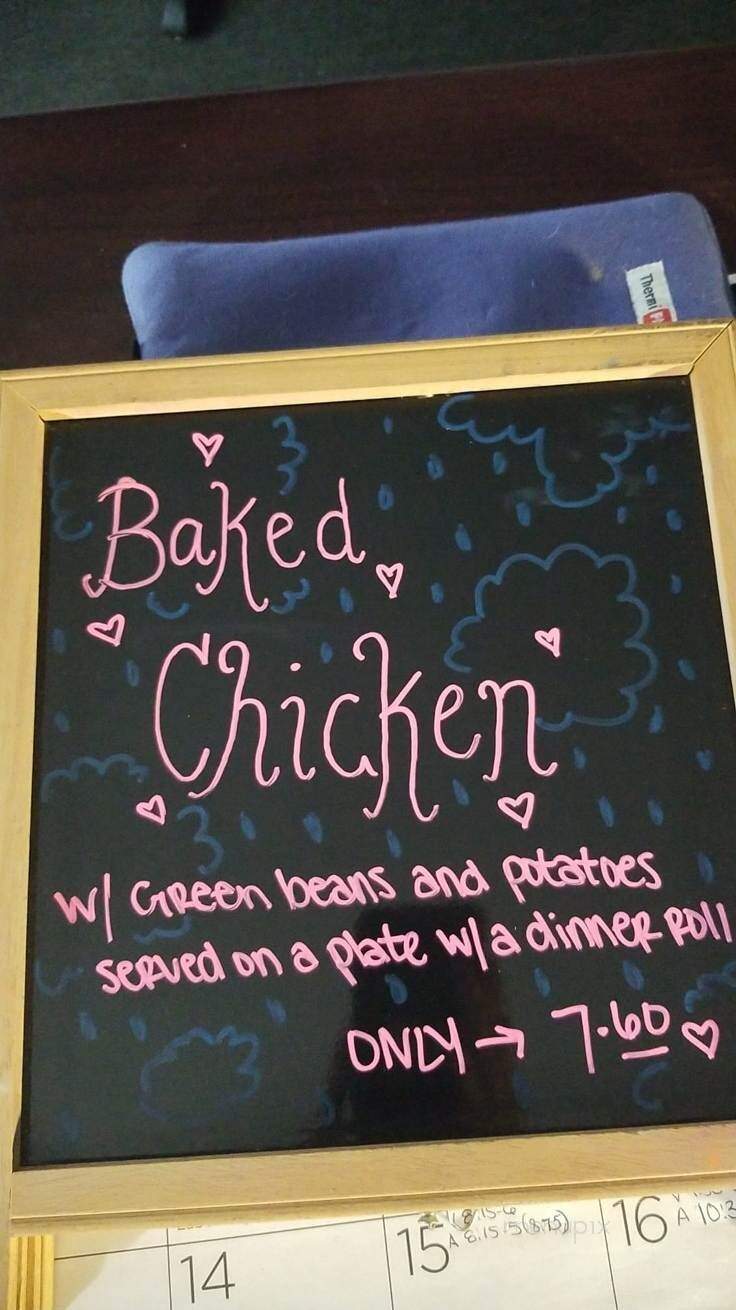 Thermi
Baked
Chicken
w/ Green beans and potatoes
served on a plate w/a dinner roll
ONLY → 7.60
14
15
A 8:15-5 (8.75)
16
A 10:3